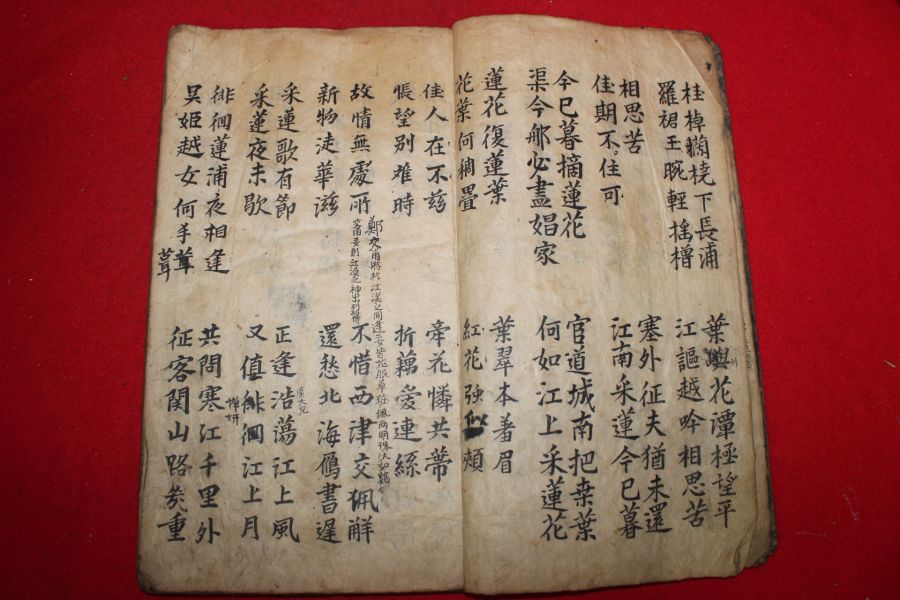 桂棹蘭橈下長浦
羅裙玉腕輕搖櫓
葉嶼花潭極望平
江謳越吟相思苦
相思苦
佳期不住可
塞外征夫猶未還
江南采蓮今已暮
今已暮摘蓮花
渠今那必盡娼家
官道城南把桒葉
何如江上采蓮花
蓮花復蓮葉
花葉何稠疊
葉翠本羞眉
紅花強似頰
佳人在不玆
悵望別难時
牽花憐共蒂
折藕愛連絲
故情無處所
新物徒華滋
鄭交甫將於江漢之間逢二女皆服華粧佩兩明珠大如鷄
江漢之神出列傳
不惜西津交佩解
還愁北海鴈書遲
采蓮歌有節
采蓮夜未歇
正逢浩蕩江上風
又值徘徊江上月
徘徊蓮浦夜相逢
吴姬越女何手茸
茸
共問寒江千里外
征客関山路幾重